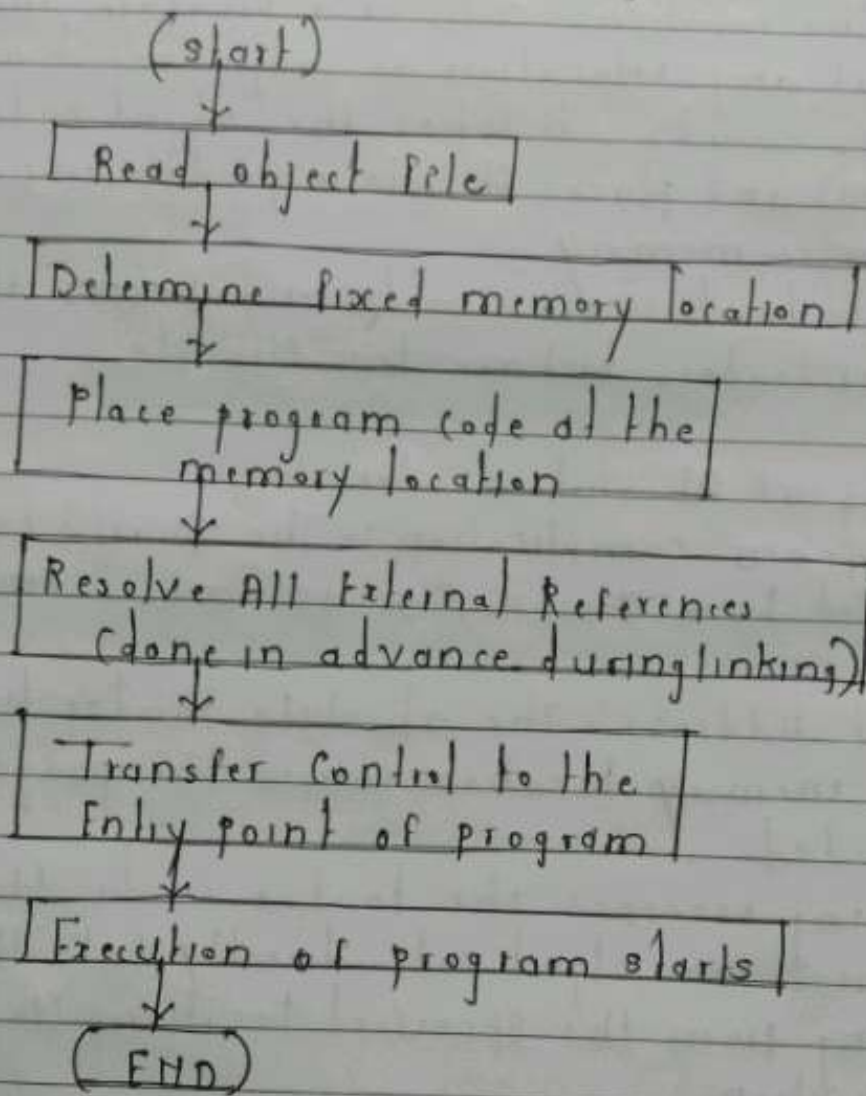 (start)
Read object file
Determine fixed memory location
Place program code at the
memory location
Resolve All External References
(done in advance during linking)
Transfer Control to the
Entry point of program
Execution of program starts
(END)